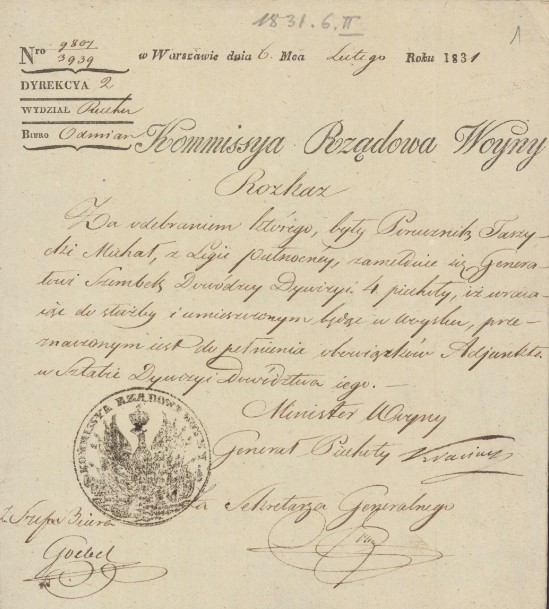 1831.6.II
1
Nro 9807
3939
w Warszawie dnia 6. Mca Lutego Roku 1831
DYREKCYA 2
WYDZIAŁ Ruchu
BIURO Odmian
Kommissya Rządowa Woyny
Rozkaz
Za odebraniem którego, były Porucznik Tarzy-
cki Michał, z Legii Północney, zamelduie się Genera-
łowi Szembek Dowodzcy Dywizyi 4 piechoty, iż wraca-
iąc do służby i umieszczonym będąc w woysku, prze-
znaczonym iest do pełnienia obowiązków Adjunkta
w Sztabie Dywizyi Dowództwa iego. —
Minister Woyny
Generał Piechoty
KOMMISSYA RZĄDOWA WOYNY
Za Sekretarza Generalnego
Z. Szefa Biura
Goebel